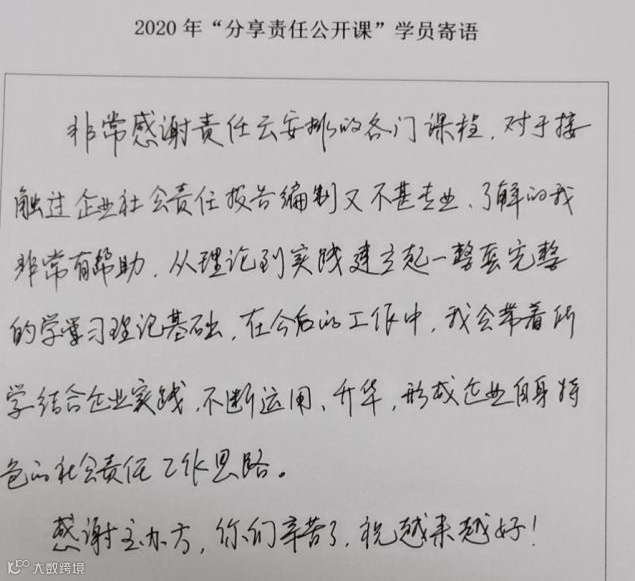 2020 年“分享责任公开课”学员寄语
非常感谢责任云安排的各门课程，对于接
触过企业社会责任报告编制又不甚专业、了解的我
非常有帮助，从理论到实践建立起一整套完整
的学习理论基础，在今后的工作中，我会带着所
学结合企业实践，不断运用、升华，形成企业自身特
色的社会责任工作思路。
感谢主办方，你们辛苦了，祝越来越好！
大数跨境